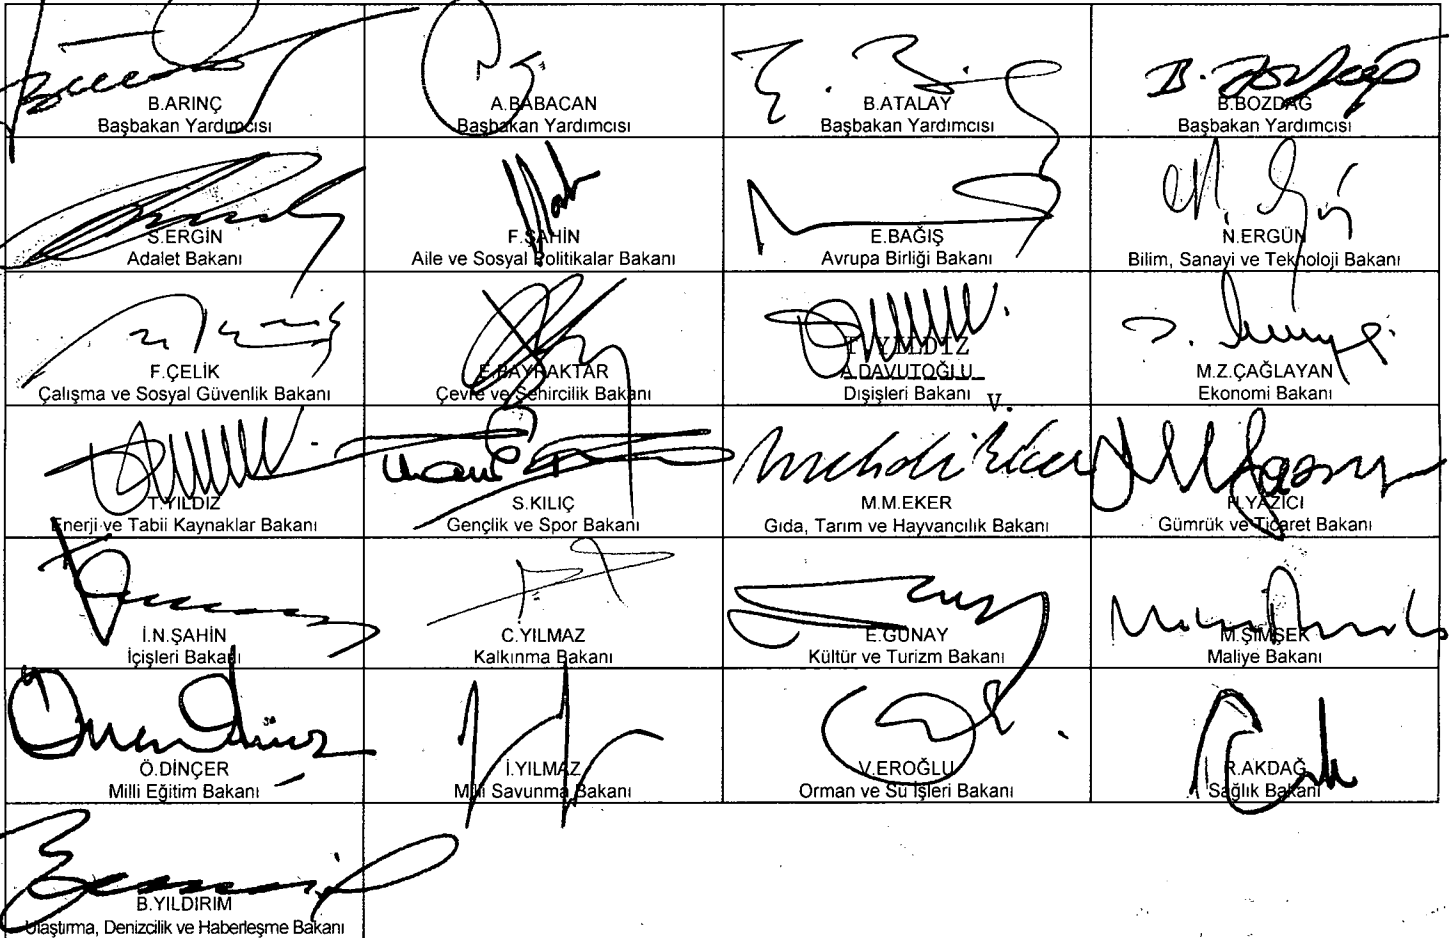 B.ARINÇ
Başbakan Yardımcısı
A.BABACAN
Başbakan Yardımcısı
B.ATALAY
Başbakan Yardımcısı
B.BOZDAĞ
Başbakan Yardımcısı
S.ERGİN
Adalet Bakanı
F.ŞAHİN
Aile ve Sosyal Politikalar Bakanı
E.BAĞIŞ
Avrupa Birliği Bakanı
N.ERGÜN
Bilim, Sanayi ve Teknoloji Bakanı
F.ÇELİK
Çalışma ve Sosyal Güvenlik Bakanı
E.BAYRAKTAR
Çevre ve Şehircilik Bakanı
T.YILDIZ
A.DAVUTOĞLU
Dışişleri Bakanı V.
M.Z.ÇAĞLAYAN
Ekonomi Bakanı
T.YILDIZ
Enerji ve Tabii Kaynaklar Bakanı
S.KILIÇ
Gençlik ve Spor Bakanı
M.M.EKER
Gıda, Tarım ve Hayvancılık Bakanı
H.YAZICI
Gümrük ve Ticaret Bakanı
İ.N.ŞAHİN
İçişleri Bakanı
C.YILMAZ
Kalkınma Bakanı
E.GÜNAY
Kültür ve Turizm Bakanı
M.ŞİMŞEK
Maliye Bakanı
Ö.DİNÇER
Milli Eğitim Bakanı
İ.YILMAZ
Milli Savunma Bakanı
V.EROĞLU
Orman ve Su İşleri Bakanı
R.AKDAĞ
Sağlık Bakanı
B.YILDIRIM
Ulaştırma, Denizcilik ve Haberleşme Bakanı